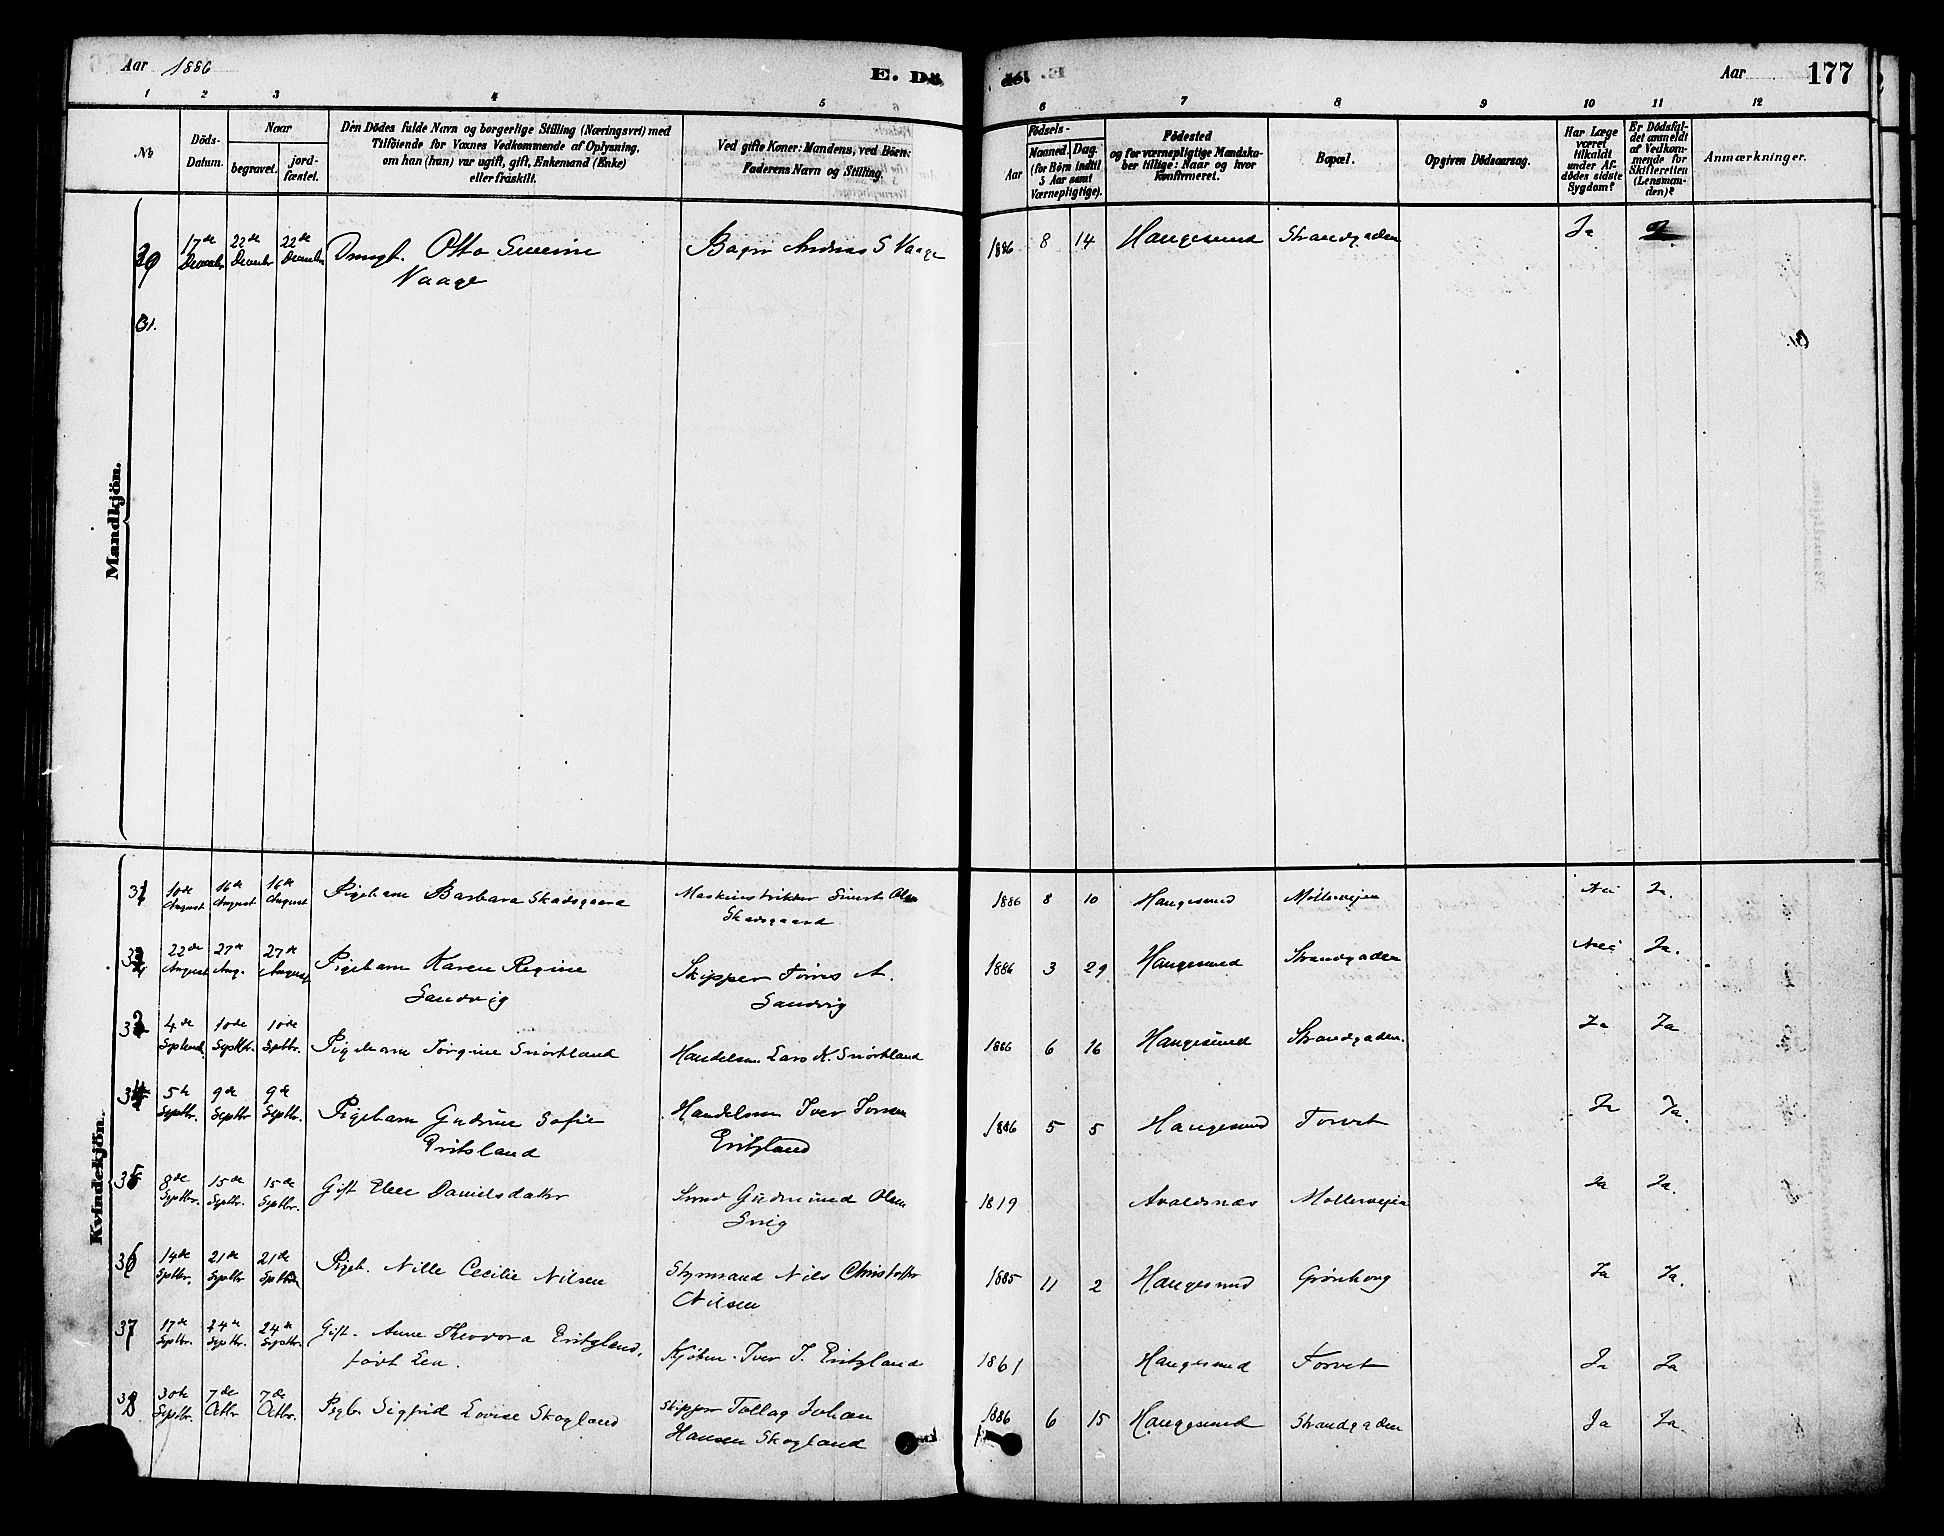 Aar 1886
E. Dö
de.
Aar
177
1 2 3 4 5 6 7 8 9 10 11 12
No
Döds-
Datum.
Naar
begravet.
jord-
fæstet.
Den Dödes fulde Navn og borgerlige Stilling (Næringsvei) med
Tilföiende for Voxnes Vedkommende af Oplysning,
om han (hun) var ugift, gift, Enkemand (Enke)
eller fraskilt.
Ved gifte Koner: Mandens, ved Börn:
Faderens Navn og Stilling.
Födsels-
Aar
Maaned. Dag.
(for Börn indtil
5 Aar samt
Værnepligtige).
Födested
og for værnepligtige Mandska-
ber tillige: Naar og hvor
Konfirmeret.
Bopæl.
Opgiven Dödsaarsag.
Har Læge
været
tilkaldt
under Af-
dödes sidste
Sygdom?
Er Dödsfal-
det anmeldt
af Vedkom-
mende for
Skifteretten
(Lensman-
den)?
Anmærkninger.
Mandkjön.
17de 22de 22de Otto Severine Bager Andreas S Vaage 1886 8 14 Haugesund Strandgaden Ja
December December December Vaage
31.
Kvindekjön.
10de 16de 16de Pigebarn Barbara Skadsgaard Maskinstrikker Sivert Olsen 1886 8 10 Haugesund Møllervejen Nei Ja.
August August August Skadsgaard
22de 27de 27de Pigebarn Karen Regine Skipper Tørres A. 1886 3 29 Haugesund Strandgaden Nei Ja.
August Aug. August Sandvig Sandvig
4de 10de 10de Pigebarn Jørgine Snørtland Handelsm. Lars K. Snørtland 1886 6 16 Haugesund Strandgaden. Ja Ja
Septbr. Septbr.
34 5te 9de 9de Pigebarn Gudrune Sofie Handelsm Iver Iversen 1886 5 5 Haugesund Torvet Ja Ja.
Septbr. Septbr Septbr. Eritsland Eritzland
35 8de 15de 15de Gift Elen Danielsdatter Smed Gudmund Olsen 1819 Avaldsnæs Møllervejen Ja Ja.
Septbr. Septbr. Septbr.
36 14de 21de 21de Pigeb. Nille Cecilie Nilsen Styrmand Nils Christoffer 1885 11 2 Haugesund Grønhaug Ja Ja.
Septbr. Septbr Septbr Nilsen
37 17de 24de 24de Gift. Anne Theodora Eritzland, Kjøbm. Iver I. Eritzland 1861 Haugesund Torvet Ja Ja
Septbr. Septbr. Septbr. født Lea.
38 30te 7de 7de Pigb. Sigfrid Lovise Skogland Skipper Tollag Johan 1886 6 15 Haugesund Strandgaden Ja Ja.
Septbr. Octbr Octbr. Hansen Skogland